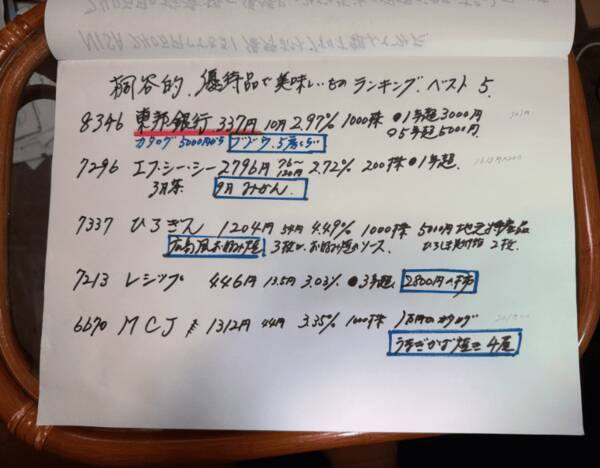 桐谷的、優待品で美味しいもの ランキング、ベスト 5.
8346 東邦銀行 337円 10円 2.97% 1000株 ●1年超 3000円
カタログ 5000円から ブドウ 5房くらい ○5年超 5000円
7296 エフ・シー・シー 2796円 76〜120円 2.72% 200株 ●1年超
3月茶 9月 みかん
7337 ひろぎん 1204円 54円 4.49% 1000株 5000円 地元特産品
広島風お好み焼 3枚 お好み焼のソース
2枚
7213 レシップ 446円 13.5円 3.03% ●3年超 2800円の柿
6670 MCJ 1312円 44円 3.35% 1000株 1万円のカタログ
うなぎかば焼き 4尾